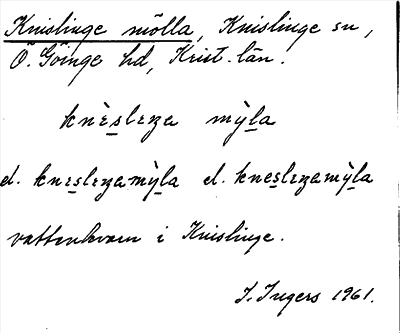 Knislinge mölla, Knislinge sn,
Ö. Göinge hd, Krist. län.
knèsleŋa mỳla
el. knɛslɛŋamỳla el. kneslɛŋamỳla
vattenkvarn i Knislinge.
I. Ingers 1961.